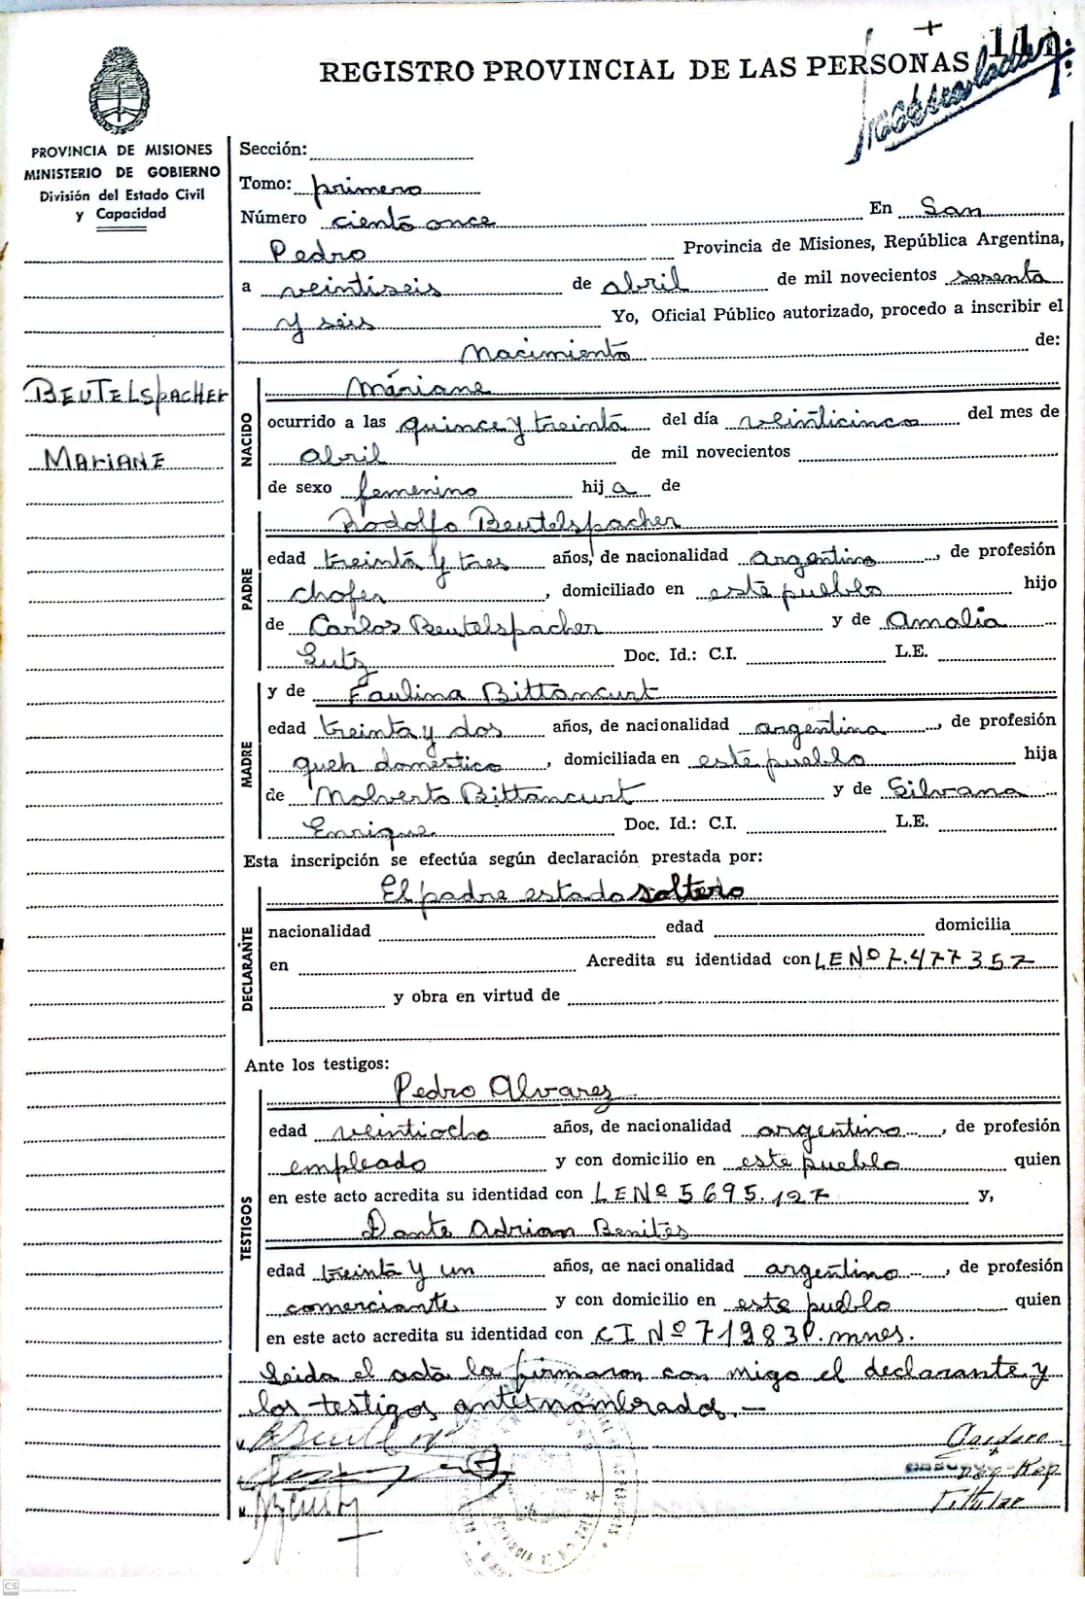 REGISTRO PROVINCIAL DE LAS PERSONAS
PROVINCIA DE MISIONES
MINISTERIO DE GOBIERNO
División del Estado Civil
y Capacidad
BEUTELSPACHER
MARIANE
Sección:
Tomo: primero
Número ciento once En San
Pedro Provincia de Misiones, República Argentina,
a veintiseis de abril de mil novecientos sesenta
y seis Yo, Oficial Público autorizado, procedo a inscribir el
Nacimiento de:
NACIDO
Mariane
ocurrido a las quince y treinta del día veinticinco del mes de
abril de mil novecientos
de sexo femenino hij a de
PADRE
Rodolfo Beutelspacher
edad treinta y tres años, de nacionalidad argentino, de profesión
chofer, domiciliado en este pueblo hijo
de Carlos Beutelspacher y de Amalia
Lutz Doc. Id.: C.I. L.E.
MADRE
y de Paulina Bittancurt
edad treinta y dos años, de nacionalidad argentina, de profesión
queh domestico, domiciliada en este pueblo hija
de Nolverto Bittancurt y de Silvana
Enrique Doc. Id.: C.I. L.E.
Esta inscripción se efectúa según declaración prestada por:
DECLARANTE
El padre estado soltero
nacionalidad edad domicilia
en Acredita su identidad con LE Nº 7.477357
y obra en virtud de
Ante los testigos:
TESTIGOS
Pedro Alvarez
edad veintiocho años, de nacionalidad argentino, de profesión
empleado y con domicilio en este pueblo quien
en este acto acredita su identidad con LE Nº 5695.127 y,
Dante Adrian Benites
edad treinta y un años, de nacionalidad argentino, de profesión
comerciante y con domicilio en este pueblo quien
en este acto acredita su identidad con CI Nº 71983 P. mnes.
Leida el acta la firmaron con migo el declarante y
los testigos antesnombrados.—
Titular
CS